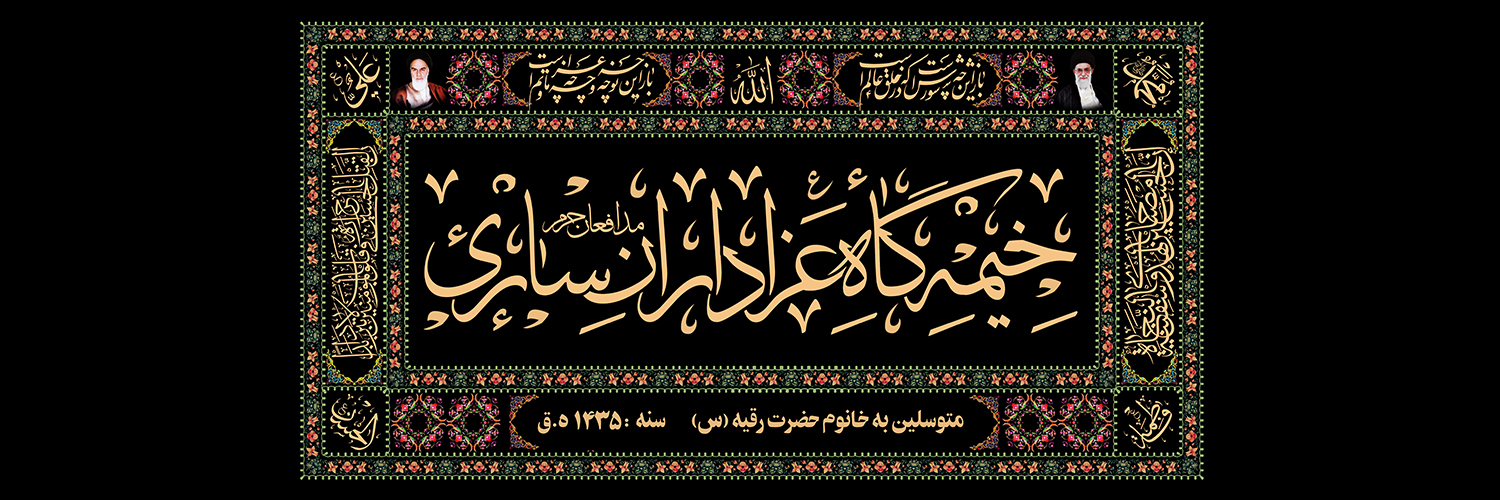 محمد
باز این چه شورش است که در خلق عالم است
الله
باز این چه نوحه و چه عزا و چه ماتم است
علی
ان الحسین مصباح الهدی و سفینة النجاة
خیمه گاه عزاداران ساری
مدافعان حرم
فاطمه
متوسلین به خانوم حضرت رقیه (س) سنه : ۱۴۳۵ ه.ق